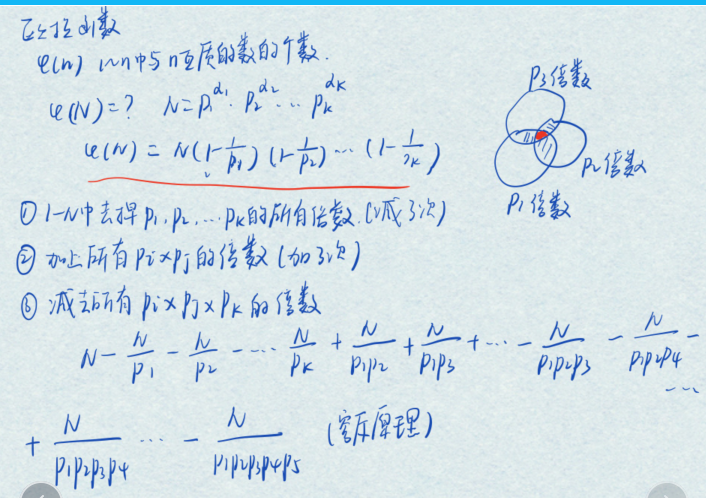 欧拉函数
φ(n) 1~n中与n互质的数的个数.
φ(N)=? N=p₁^α₁·p₂^α₂…pₖ^αₖ
φ(N) = N(1-1/p₁)(1-1/p₂)…(1-1/pₖ)
P₃倍数
P₂倍数
P₁倍数
① 1-N中去掉p₁,p₂,…pₖ的所有倍数.(减了3次)
② 加上所有pi×pj的倍数(加了3次)
③ 减去所有pi×pj×pₖ的倍数
N - N/p₁ - N/p₂ - … N/pₖ + N/p₁p₂ + N/p₁p₃ + … - N/p₁p₂p₃ - N/p₁p₂p₄ - …
+ N/p₁p₂p₃p₄ … - N/p₁p₂p₃p₄p₅ (容斥原理)